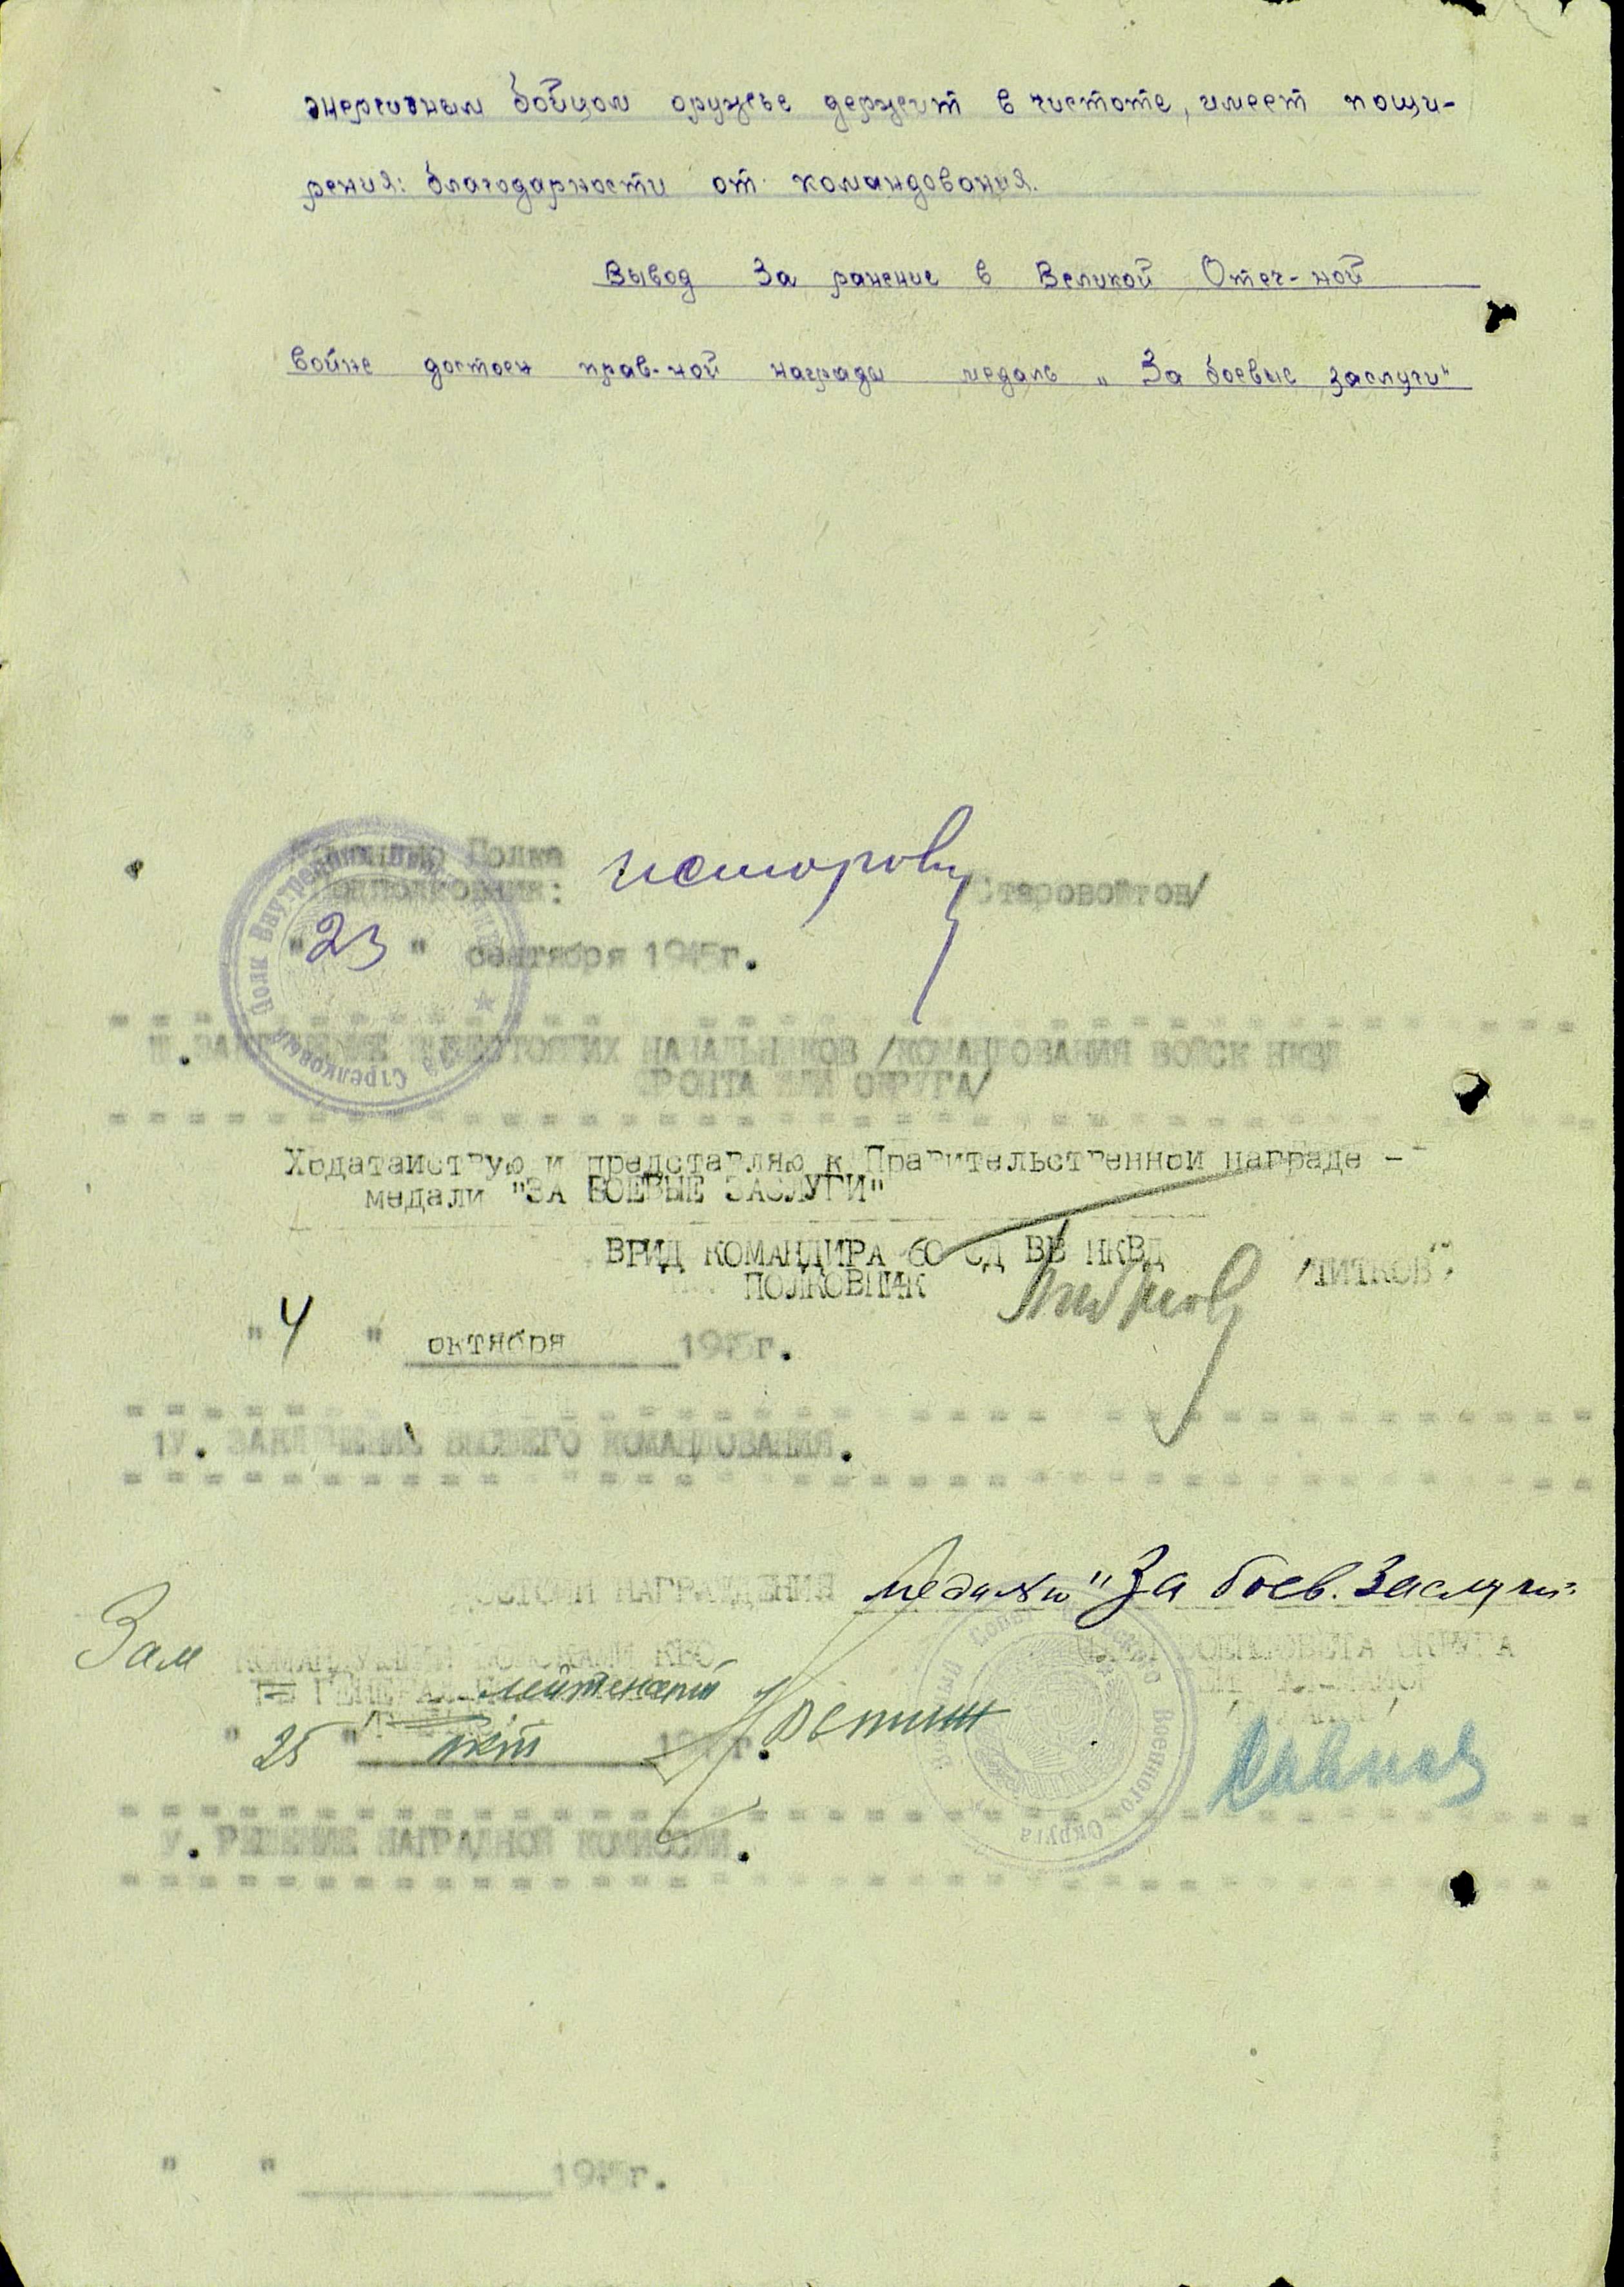 энергичным бойцом оружье держит в чистоте, имеет поощи-
рения: благодарности от командования.
Вывод За ранение в Великой Отеч-ной
войне достоен прав-ной награды медаль „За боевые заслуги"
Полка
Старовойтов/
"23" сентября 1945г.
НАЧАЛЬНИКОВ /КОМАНДОВАНИЯ ВОЙСК НКВД
ФРОНТА ИЛИ ОКРУГА/
Ходатайствую и представляю к Правительственной награде -
медали "ЗА БОЕВЫЕ ЗАСЛУГИ"
ВРИД КОМАНДИРА 60 СД ВВ НКВД
ПОЛКОВНИК /ТИТКОВ/
"4" октября 1945г.
1У. ЗАКЛЮЧЕНИЕ ВЫСШЕГО КОМАНДОВАНИЯ.
НАГРАЖДЕНИЯ медалью "За боев. Заслуги"
Зам КОМАНДУЮЩИЙ ВОЙСКАМИ
лейтенант
"25" окт
У. РЕШЕНИЕ НАГРАДНОЙ КОМИССИИ.
" " 1945г.